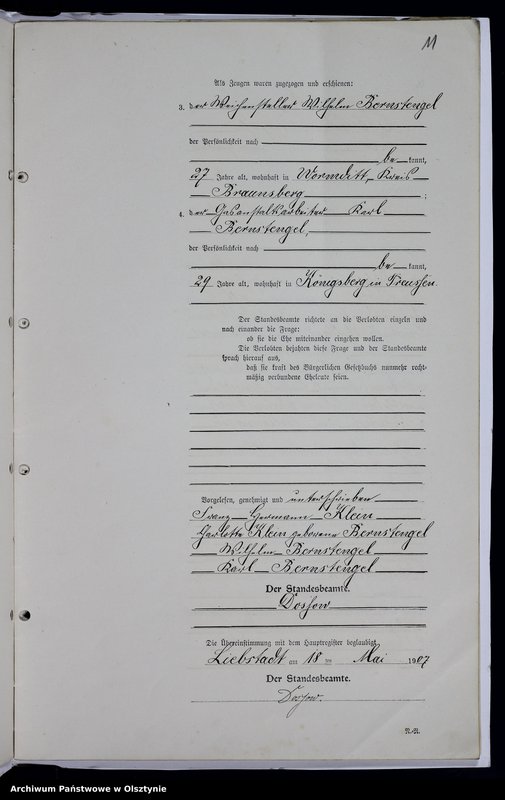 11
Als Zeugen waren zugezogen und erschienen:
3. der Weichensteller Wilhelm Bernstengel
der Persönlichkeit nach
be kannt,
27 Jahre alt, wohnhaft in Wormditt, Kreis
Braunsberg ;
4. der Gasanstaltsarbeiter Karl
Bernstengel,
der Persönlichkeit nach
be kannt,
29 Jahre alt, wohnhaft in Königsberg in Preussen
Der Standesbeamte richtete an die Verlobten einzeln und
nach einander die Frage:
ob sie die Ehe miteinander eingehen wollen.
Die Verlobten bejahten diese Frage und der Standesbeamte
sprach hierauf aus,
daß sie kraft des Bürgerlichen Gesetzbuchs nunmehr recht-
mäßig verbundene Eheleute seien.
Vorgelesen, genehmigt und unterschrieben
Franz Hermann Klein
Charlotte Klein geborene Bernstengel
Wilhelm Bernstengel
Karl Bernstengel
Der Standesbeamte.
Die Übereinstimmung mit dem Hauptregister beglaubigt
Liebstadt am 18 ten Mai 1907
Der Standesbeamte.
Archiwum Państwowe w Olsztynie